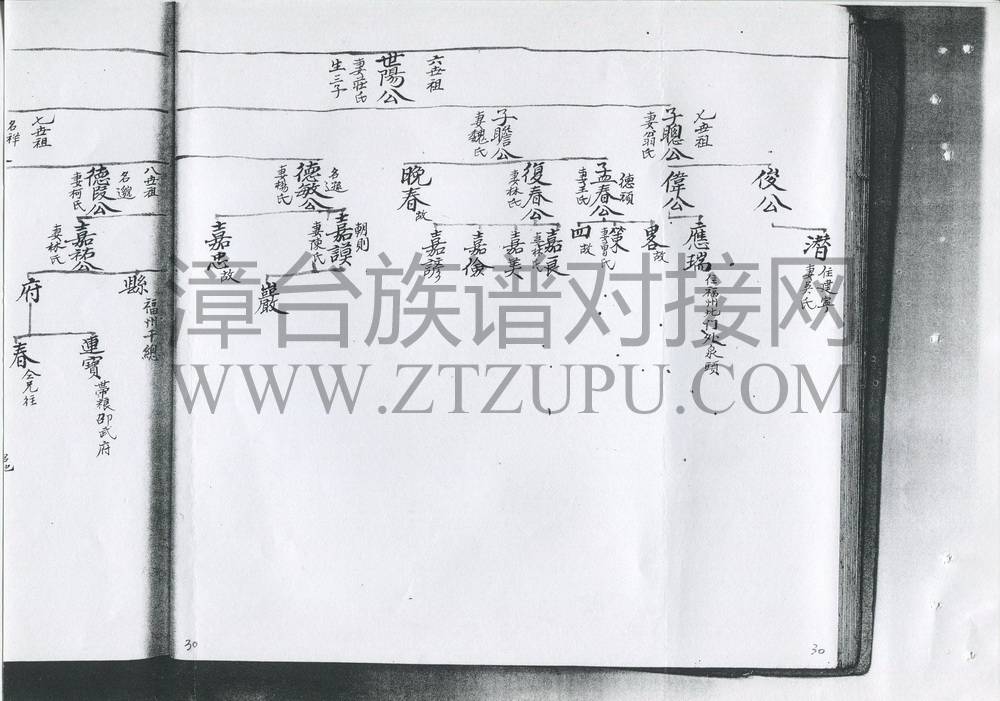 六世祖
世陽公
妻莊氏
生三子
七世祖
子聰公
妻翁氏
子瞻公
妻魏氏
七世祖
名祥
俊公
偉公
德頎
孟春公
妻王氏
復春公
妻林氏
晚春
故
名遜
德敏公
妻楊氏
八世祖
名邈
德段公
妻柯氏
潛
住建寧
妻吳氏
應瑞
住福州北门外泉頭
畧
故
策
妻曾氏
四
故
嘉良
妻林氏
嘉美
嘉儉
嘉諺
朝則
嘉謨
妻陳氏
嘉忠
故
嘉祐公
妻林氏
巖
縣
福州千總
府
連寶
帶糧邵武府
春
仝兄往
漳台族谱对接网
WWW.ZTZUPU.COM
30
30